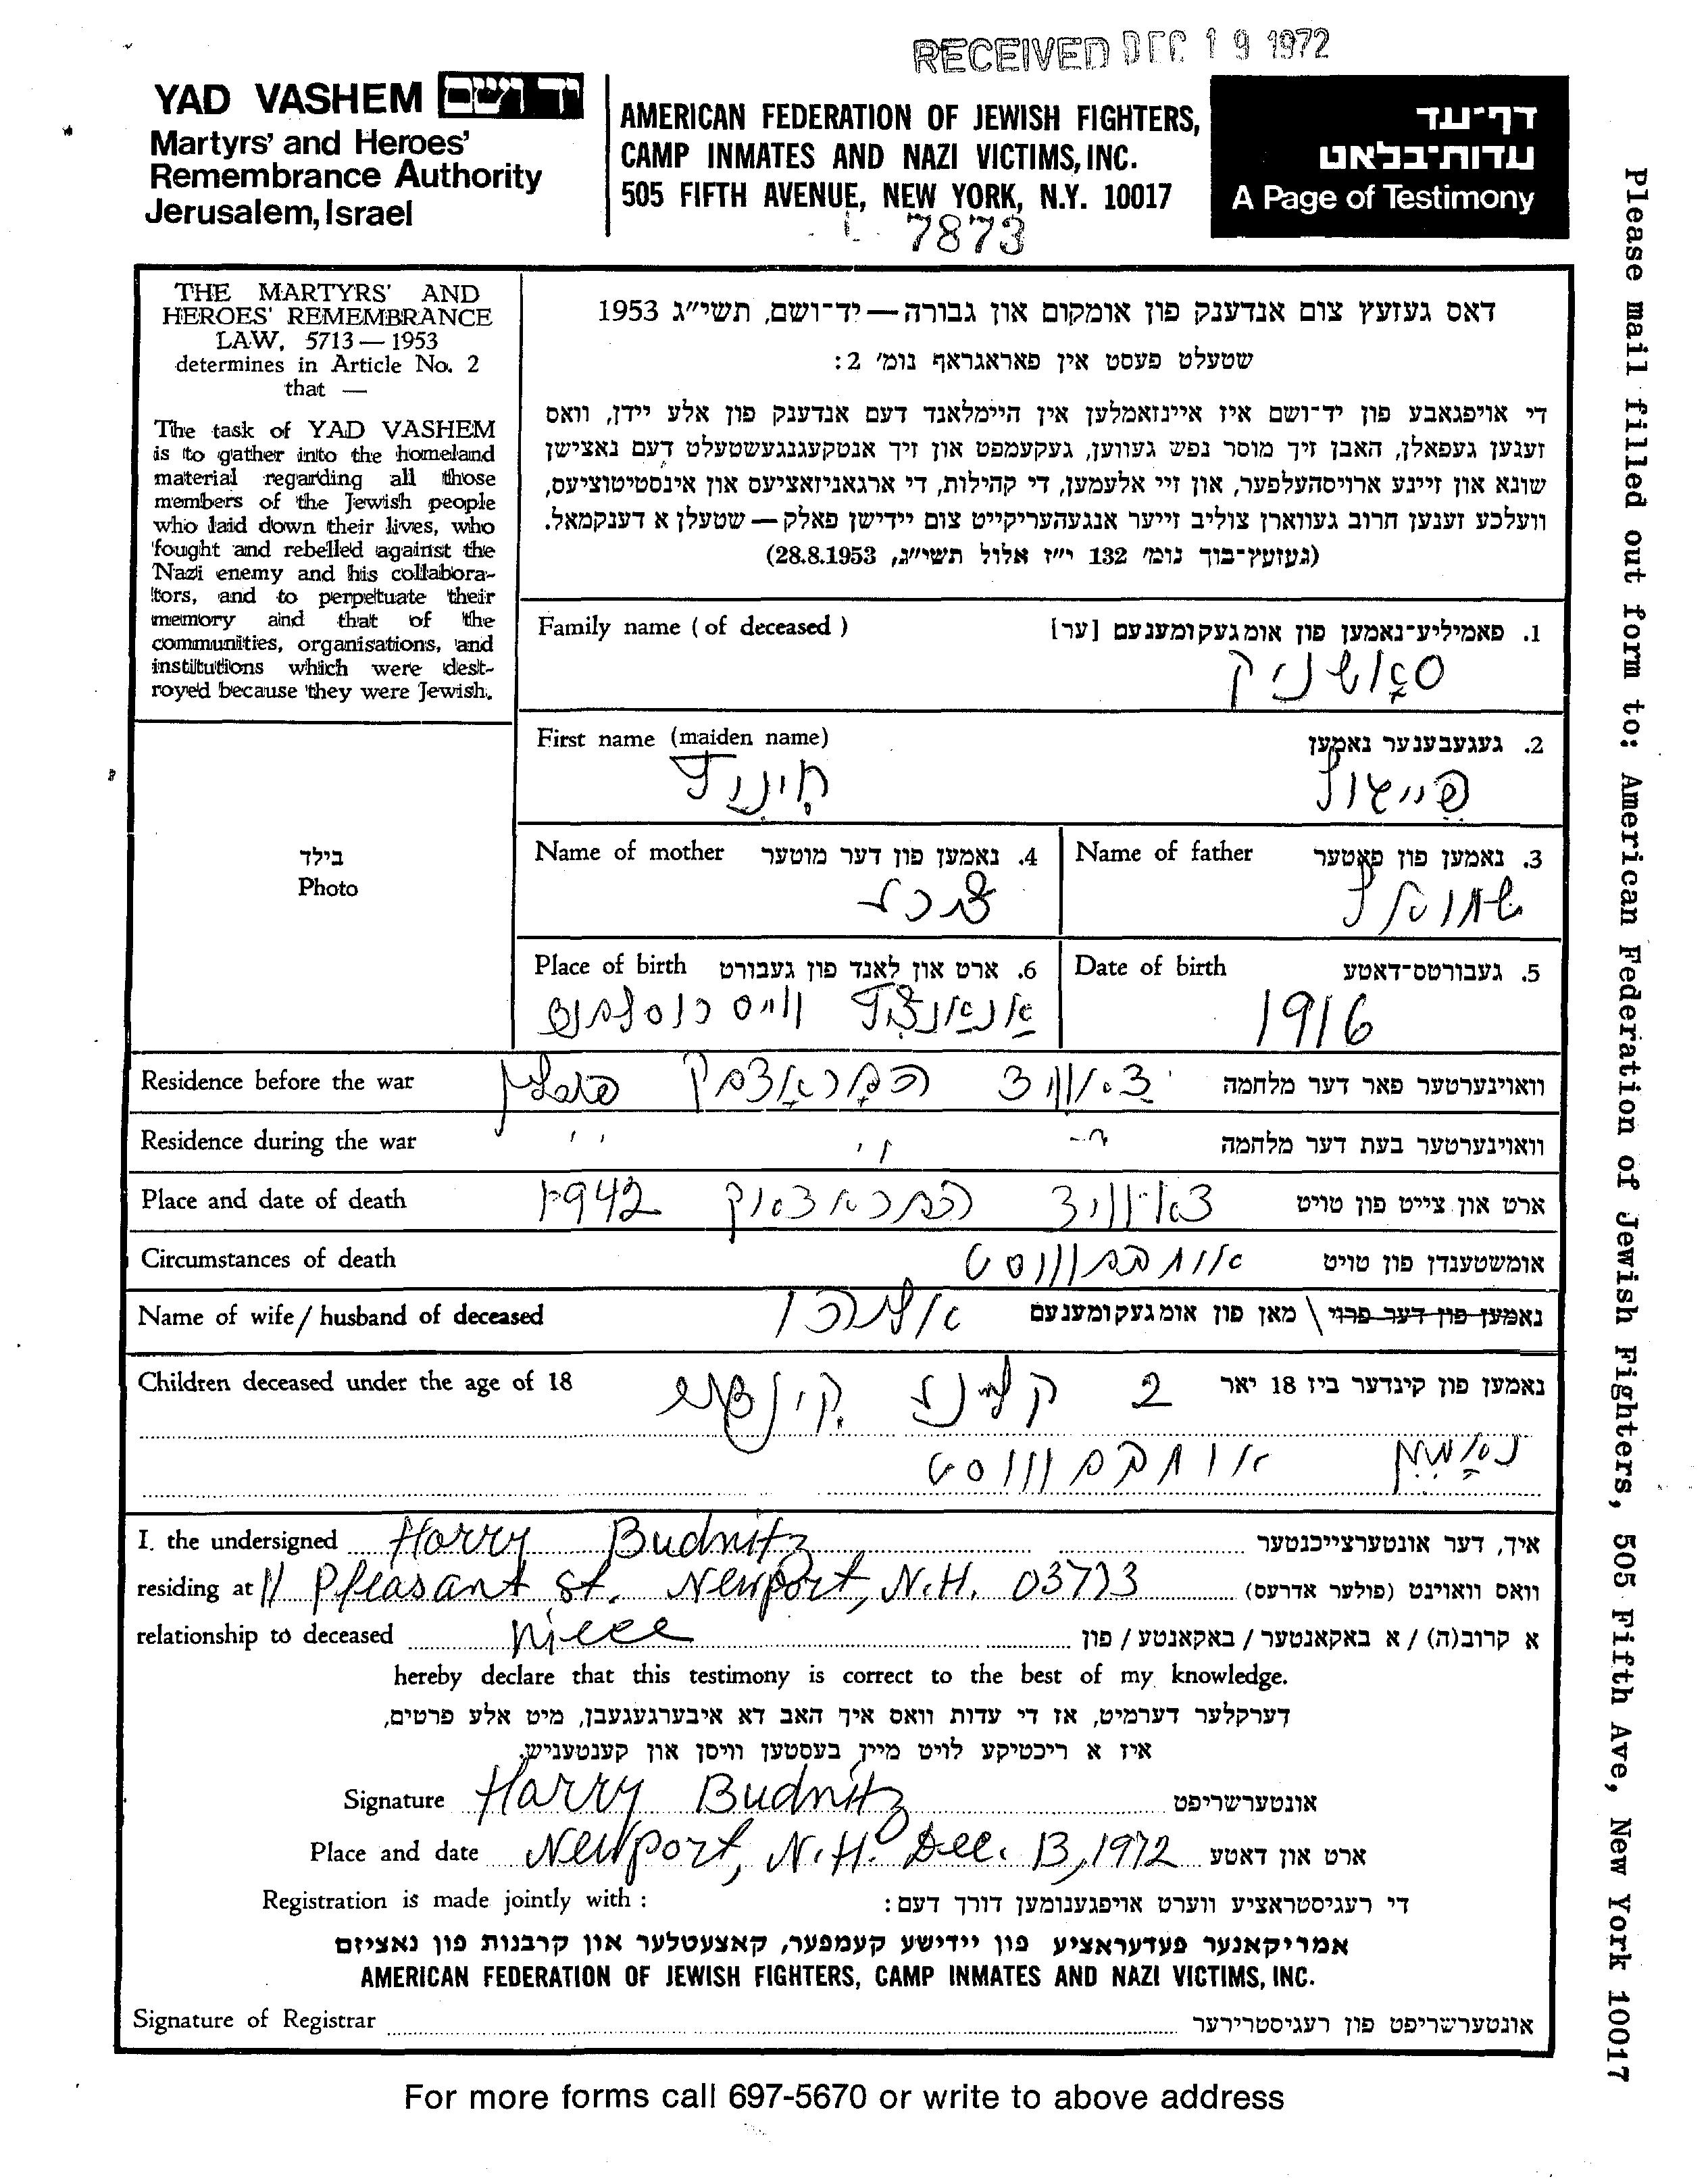 RECEIVED DEC 19 1972
YAD VASHEM יד ושם
Martyrs' and Heroes'
Remembrance Authority
Jerusalem, Israel
AMERICAN FEDERATION OF JEWISH FIGHTERS,
CAMP INMATES AND NAZI VICTIMS, INC.
505 FIFTH AVENUE, NEW YORK, N.Y. 10017
7873
דף־עד
עדות־בלאט
A Page of Testimony
THE MARTYRS' AND
HEROES' REMEMBRANCE
LAW, 5713 — 1953
determines in Article No. 2
that —
The task of YAD VASHEM
is to gather into the homeland
material regarding all those
members of the Jewish people
who laid down their lives, who
fought and rebelled against the
Nazi enemy and his collabora-
tors, and to perpetuate their
memory and that of the
communities, organisations, and
institutions which were dest-
royed because they were Jewish.
דאס געזעץ צום אנדענק פון אומקום און גבורה — יד־ושם, תשי״ג 1953
שטעלט פעסט אין פאראגראף נומ׳ 2:
די אויפגאבע פון יד־ושם איז איינזאמלען אין היימלאנד דעם אנדענק פון אלע יידן, וואס
זענען געפאלן, האבן זיך מוסר נפש געווען, געקעמפט און זיך אנטקעגנגעשטעלט דעם נאצישן
שונא און זיינע ארויסהעלפער, און זיי אלעמען, די קהילות, די ארגאניזאציעס און אינסטיטוציעס,
וועלכע זענען חרוב געווארן צוליב זייער אנגעהעריקייט צום יידישן פאלק — שטעלן א דענקמאל.
(געזעץ־בוך נומ׳ 132 י״ז אלול תשי״ג, 28.8.1953)
Family name (of deceased) 1. פאמיליע־נאמען פון אומגעקומענעם [ער]
סאָשניק
First name (maiden name) 2. געגעבענער נאמען
חינע
בילד
Photo
Name of mother 4. נאמען פון דער מוטער
Name of father 3. נאמען פון פאטער
Place of birth 6. ארט און לאנד פון געבורט
Date of birth 5. געבורטס־דאטע
1916
Residence before the war וואוינערטער פאר דער מלחמה
Residence during the war וואוינערטער בעת דער מלחמה
Place and date of death ארט און צייט פון טויט
1942
Circumstances of death אומשטענדן פון טויט
אומבאוואוסט
Name of wife / husband of deceased נאמען פון דער פרוי \ מאן פון אומגעקומענעם
אהרן
Children deceased under the age of 18 נאמען פון קינדער ביז 18 יאר
2 קליינע קינדער
נאָמען אומבאוואוסט
I. the undersigned Harry Budnitz איך, דער אונטערצייכנטער
residing at 11 Pleasant St. Newport, N.H. 03773 וואס וואוינט (פולער אדרעס)
relationship to deceased niece א קרוב(ה) / א באקאנטער / באקאנטע / פון
hereby declare that this testimony is correct to the best of my knowledge.
דערקלער דערמיט, אז די עדות וואס איך האב דא איבערגעגעבן, מיט אלע פרטים,
איז א ריכטיקע לויט מיין בעסטען וויסן און קענטעניש.
Signature Harry Budnitz אונטערשריפט
Place and date Newport, N.H. Dec. 13, 1972 ארט און דאטע
Registration is made jointly with : די רעגיסטראציע ווערט אויפגענומען דורך דעם :
אמריקאנער פעדעראציע פון יידישע קעמפער, קאצעטלער און קרבנות פון נאציזם
AMERICAN FEDERATION OF JEWISH FIGHTERS, CAMP INMATES AND NAZI VICTIMS, INC.
Signature of Registrar אונטערשריפט פון רעגיסטרירער
For more forms call 697-5670 or write to above address
Please mail filled out form to: American Federation of Jewish Fighters, 505 Fifth Ave, New York 10017